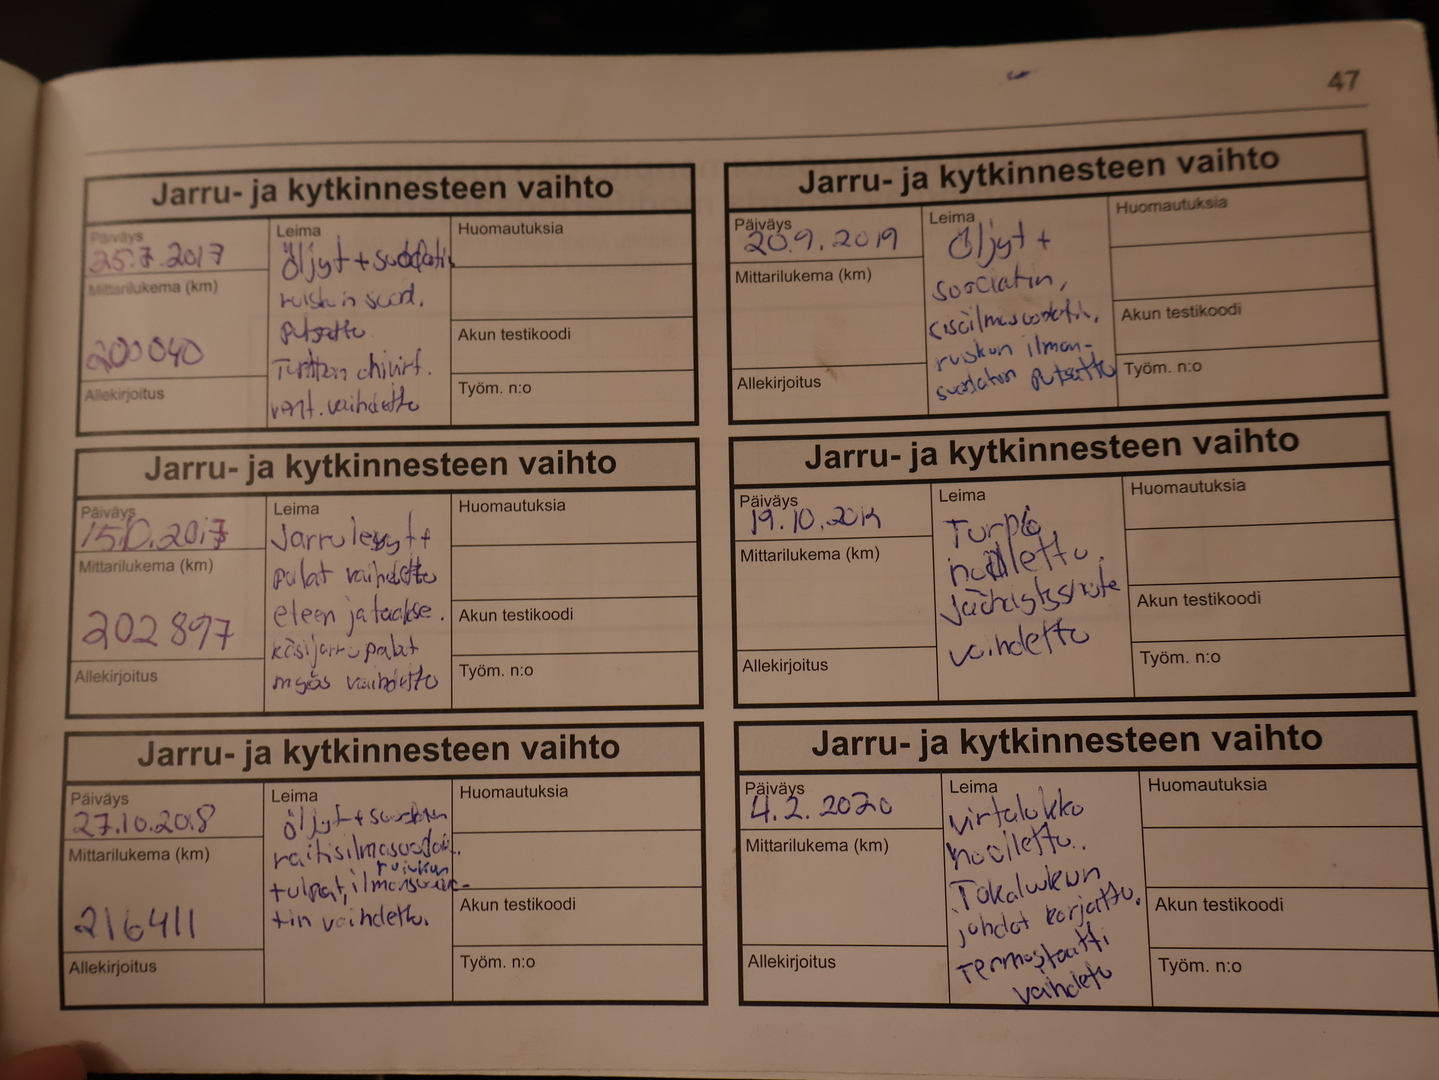 47
Jarru- ja kytkinnesteen vaihto
Päiväys
25.7.2017
Mittarilukema (km)
200040
Allekirjoitus
Leima
Öljyt + suodatin
putsattu
vaihdettu
Huomautuksia
Akun testikoodi
Työm. n:o
Jarru- ja kytkinnesteen vaihto
Päiväys
15.10.2017
Mittarilukema (km)
202897
Allekirjoitus
Leima
Jarrulevyt +
palat vaihdettu
eteen ja taakse.
käsijarrupalat
myös vaihdettu
Huomautuksia
Akun testikoodi
Työm. n:o
Jarru- ja kytkinnesteen vaihto
Päiväys
27.10.2018
Mittarilukema (km)
216411
Allekirjoitus
Leima
öljyt + suodatin
raitisilmasuodati.
ruiskun
tulpat, ilmansuoda-
tin vaihdettu.
Huomautuksia
Akun testikoodi
Työm. n:o
Jarru- ja kytkinnesteen vaihto
Päiväys
20.9.2019
Mittarilukema (km)
Allekirjoitus
Leima
Öljyt +
suodatin,
sisäilmasuodatin,
ruiskun ilman-
suodatin putsattu
Huomautuksia
Akun testikoodi
Työm. n:o
Jarru- ja kytkinnesteen vaihto
Päiväys
19.10.2019
Mittarilukema (km)
Allekirjoitus
Leima
Turbo
huollettu.
Jäähdytysneste
vaihdettu
Huomautuksia
Akun testikoodi
Työm. n:o
Jarru- ja kytkinnesteen vaihto
Päiväys
4.2.2020
Mittarilukema (km)
Allekirjoitus
Leima
virtalukko
huollettu.
Takaluukun
johdot korjattu.
Termostaatti
vaihdettu
Huomautuksia
Akun testikoodi
Työm. n:o